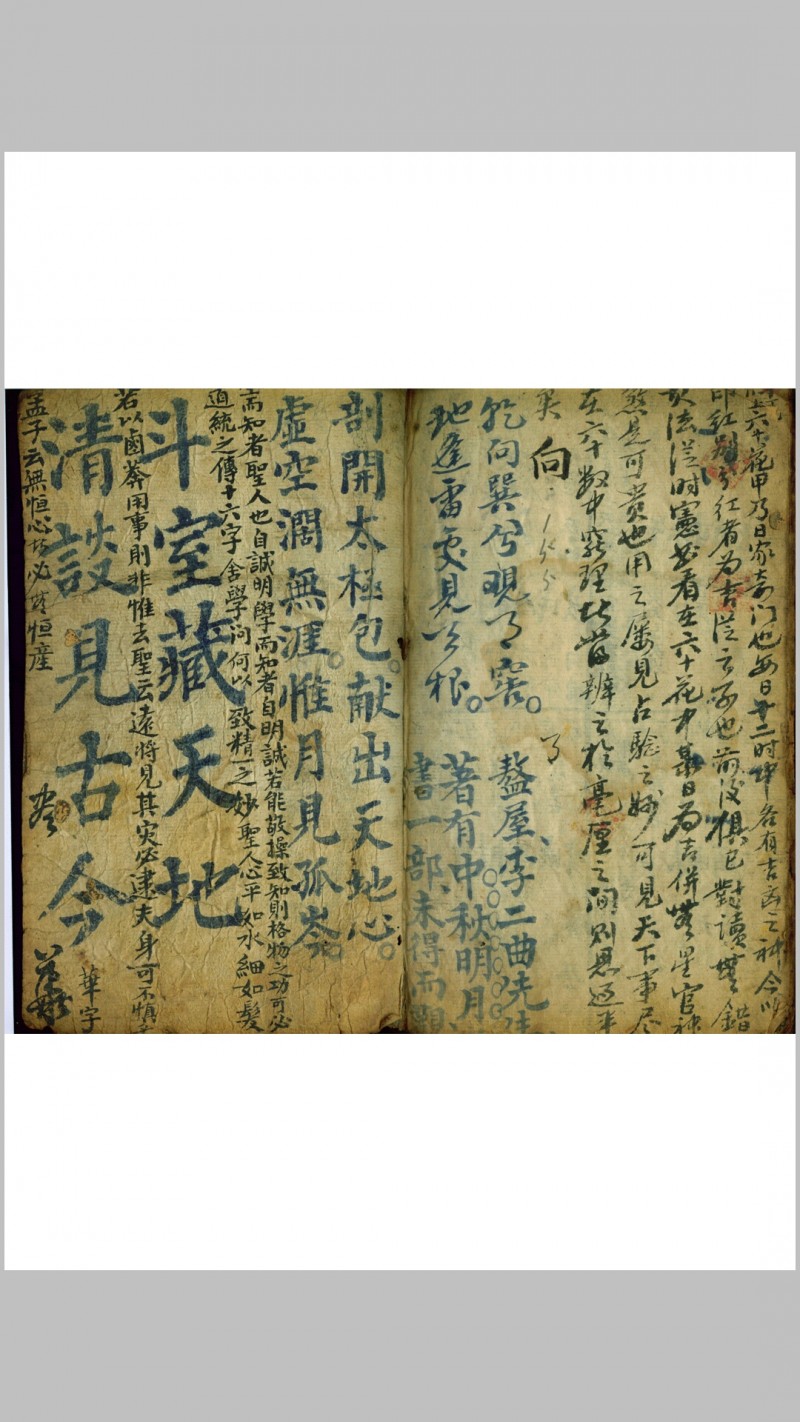 六十花甲乃日家奇门也每日十二时中各有吉凶之神今以
印红别分红者为吉從之可也前後俱已對讀無錯
其法從时憲书看在六十花中某日为吉併無星官神
煞是可贵也用之屡見占驗之妙可見天下事尽
在六十数中窮理皆辨之於毫厘之间则思过半
矣
向
乾向巽兮覌月窟
地逢雷處見天根
了
盩屋李二曲先生
著有中秋明月
書一部未得而
剖開太極包献出天地心
虛空濶無涯惟月見孤岑
高知者聖人也自誠明學而知者自明誠若能敬操致知則格物之功可必
道統之傳十六字舍學问何以致精一之妙聖人心平如水細如髮
斗室藏天地
若以鹵莽用事則非惟去聖云遠將見其灾必逮夫身可不慎
清談見古今
孟子云無恒心必無恒産
華字